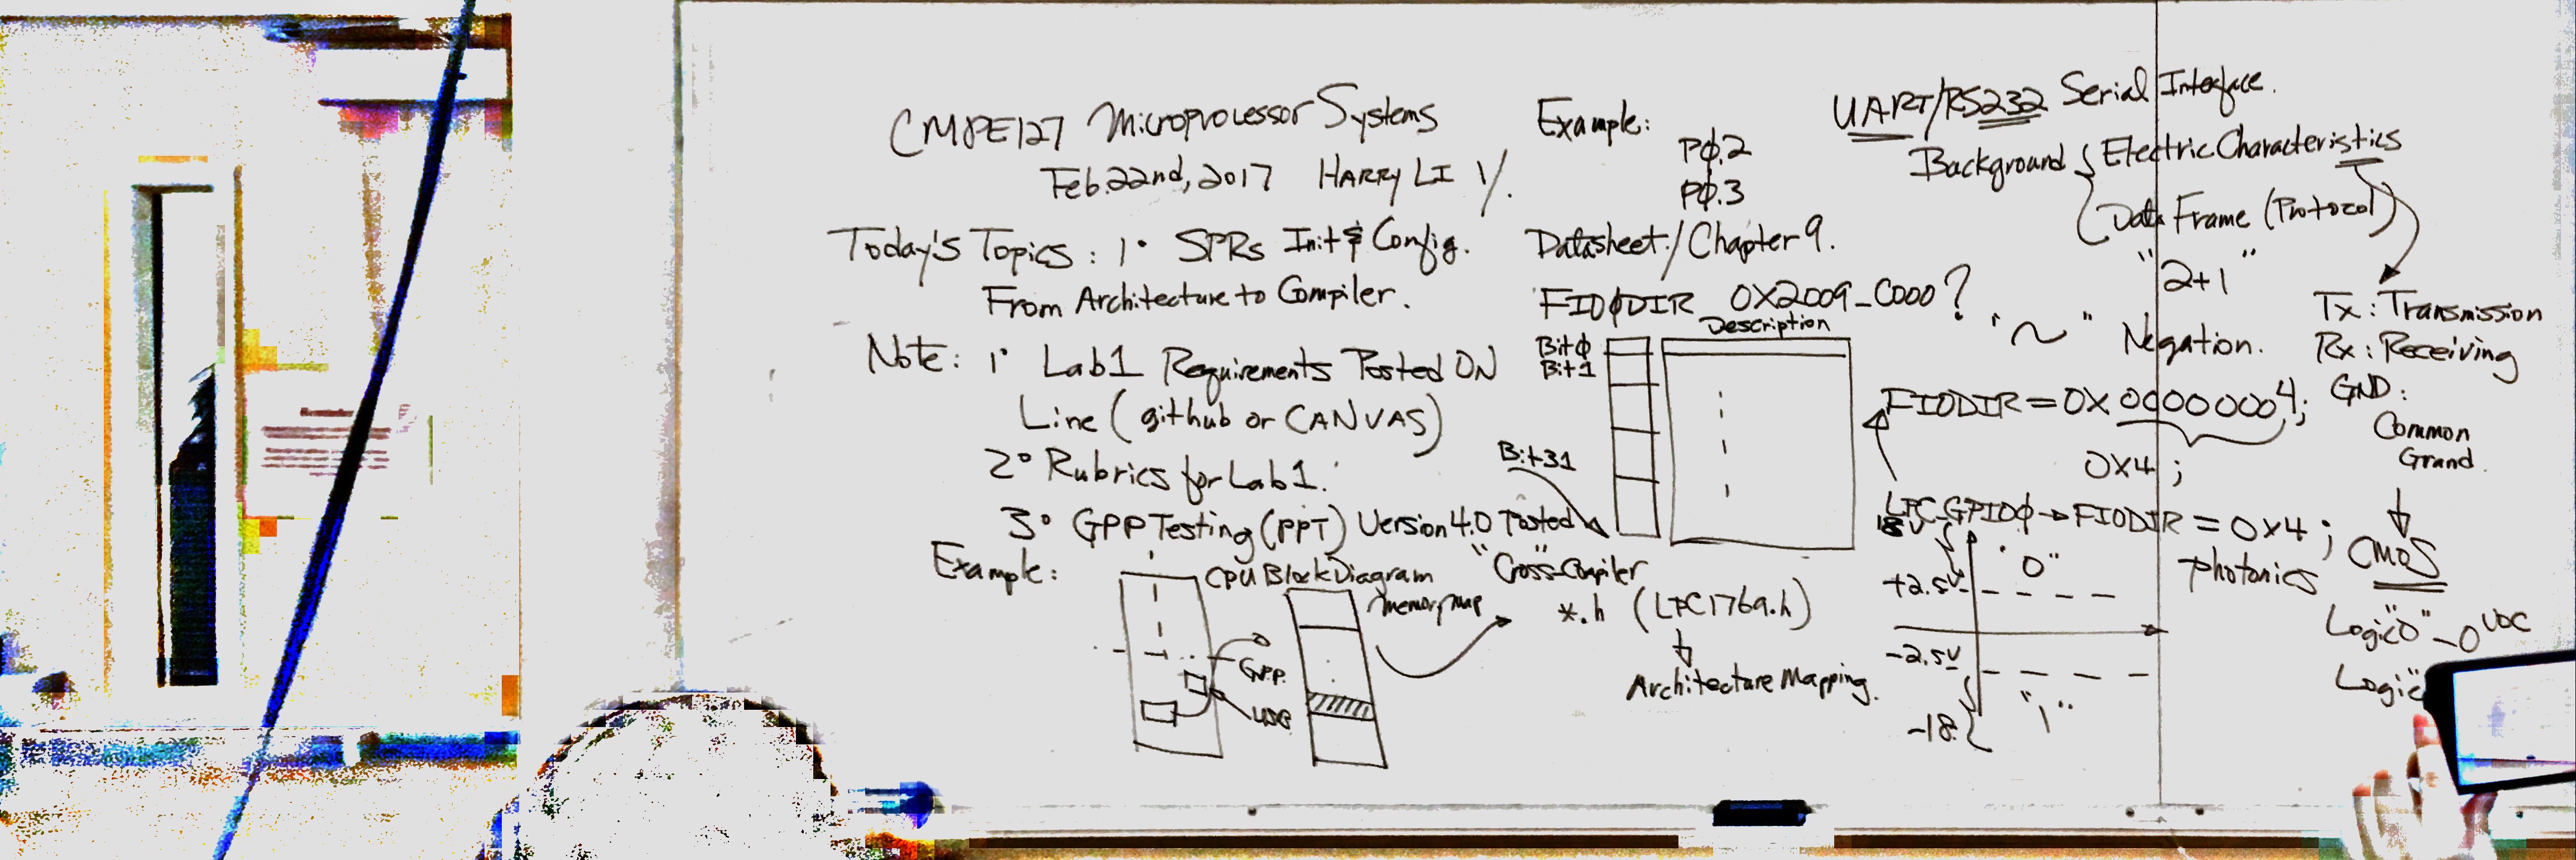 CMPE127 Microprocessor Systems
Feb.22nd, 2017 HARRY LI 1/.
Today's Topics : 1° SPRs Init & Config.
From Architecture to Compiler.
Note: 1° Lab1 Requirements Posted ON
Line (github or CANVAS)
2° Rubrics for Lab1.
3° GPP Testing (PPT) Version 4.0 Posted
Example:
CPU Block Diagram
memory map
GPP.
USB
Example:
PØ.2
PØ.3
Datasheet / Chapter 9.
FIOØDIR 0X2009_C000?
Description
BitØ
Bit1
Bit31
"Cross"-Compiler
*.h (LPC1769.h)
Architecture Mapping.
UART/RS232 Serial Interface.
Background { Electric Characteristics
Data Frame (Protocol)
"2+1"
"~" Negation.
FIODIR = 0X00000004;
0X4;
LPC_GPIOØ→FIODIR = 0X4;
18V
+2.5V
"0"
-2.5V
"1"
-18.
Photonics
Tx : Transmission
Rx : Receiving
GND :
Common
Grand.
CMOS
Logic "0" - 0 VDC
Logic